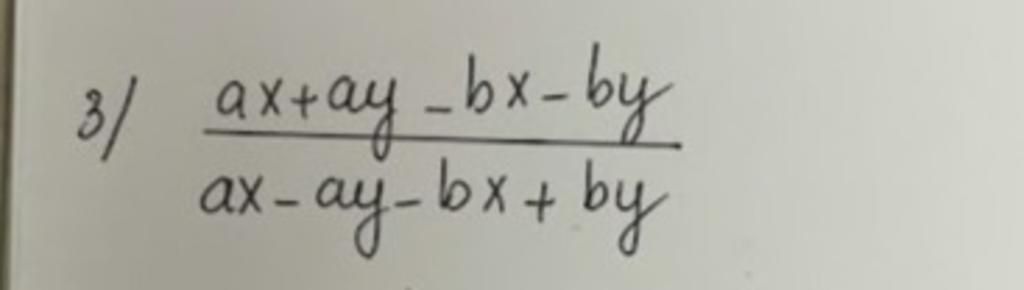 3/ ax+ay-bx-by
ax-ay-bx+by